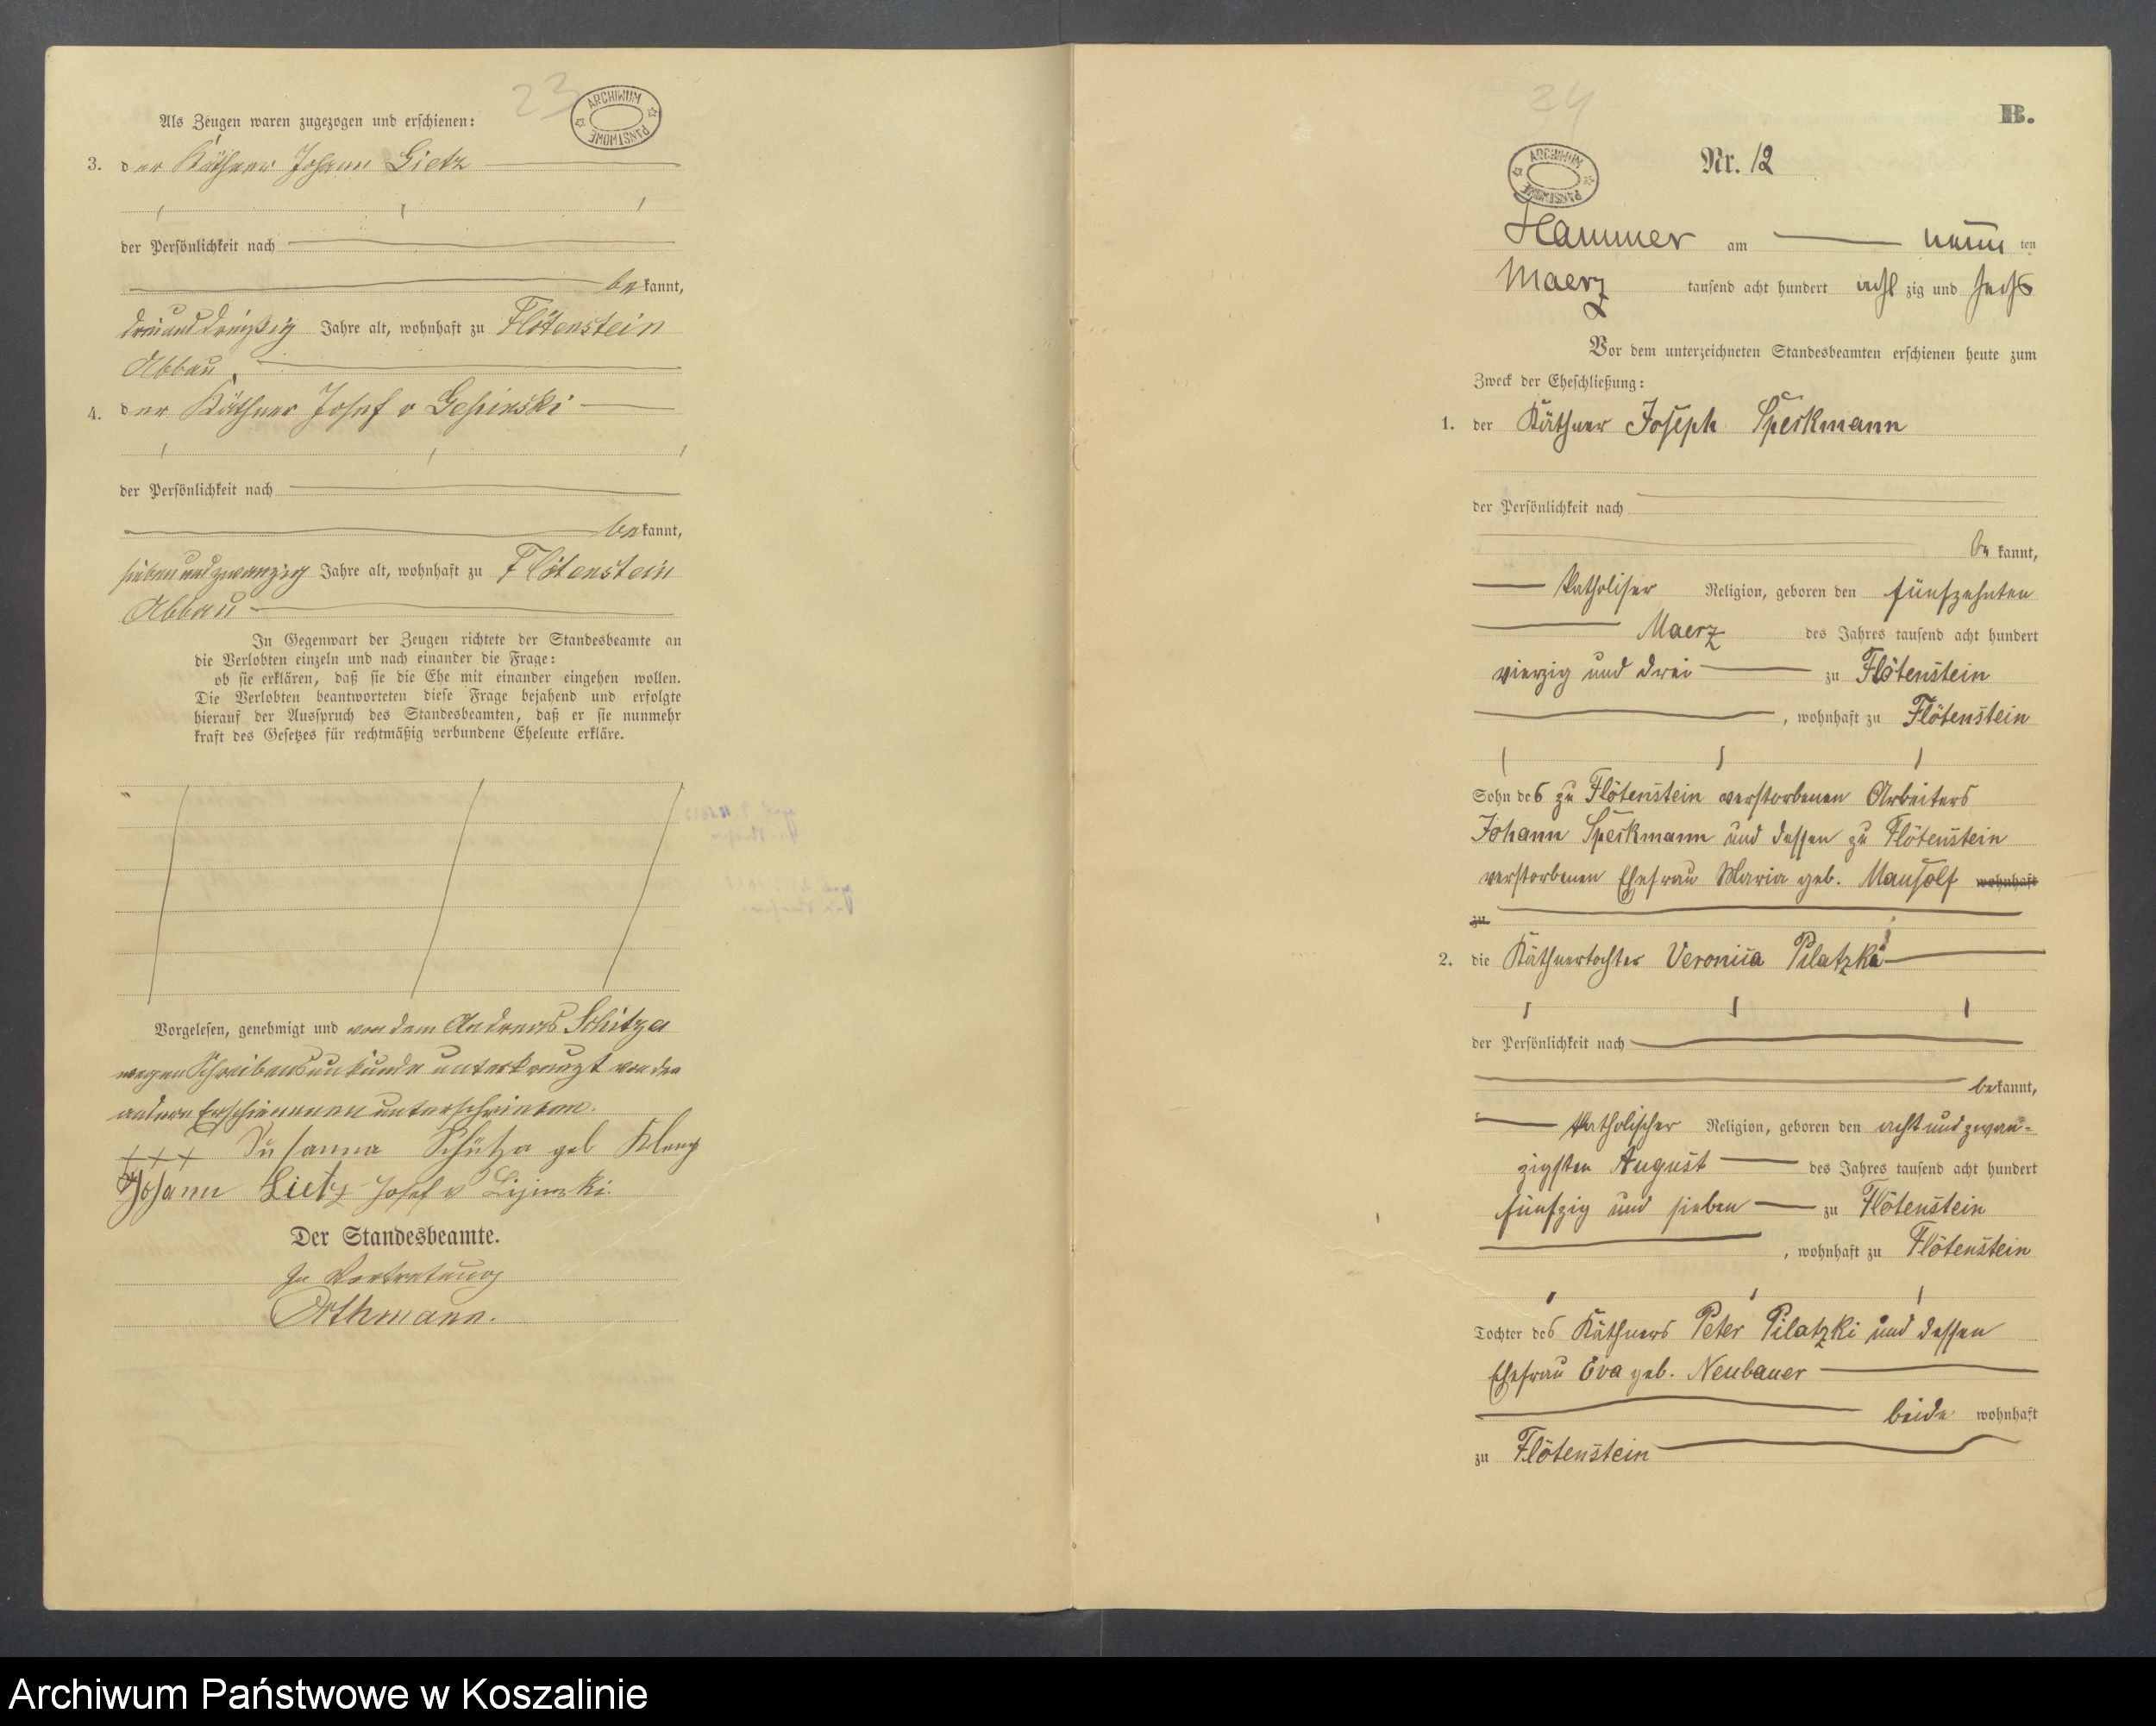 23
ARCHIWUM PAŃSTWOWE
Als Zeugen waren zugezogen und erschienen:
3. der Käthner Johann Lietz
der Persönlichkeit nach
bekannt,
dreiunddreißig Jahre alt, wohnhaft zu Flötenstein
Abbau
4. der Käthner Josef v
der Persönlichkeit nach
bekannt,
siebenundzwanzig Jahre alt, wohnhaft zu Flötenstein
Abbau
In Gegenwart der Zeugen richtete der Standesbeamte an
die Verlobten einzeln und nach einander die Frage:
ob sie erklären, daß sie die Ehe mit einander eingehen wollen.
Die Verlobten beantworteten diese Frage bejahend und erfolgte
hierauf der Ausspruch des Standesbeamten, daß er sie nunmehr
kraft des Gesetzes für rechtmäßig verbundene Eheleute erkläre.
Vorgelesen, genehmigt und von dem Andreas Schitza
wegen Schreibensunkunde unterkreuzt von den
andern Erschienenen unterschrieben.
+++ Susanna Schütza geb
Johann Lietz Josef v
Der Standesbeamte.
In Vertretung
Orthmann.
24
B.
ARCHIWUM PAŃSTWOWE
Nr. 12
Hammer am neunten
Maerz tausend acht hundert achtzig und sechs
Vor dem unterzeichneten Standesbeamten erschienen heute zum
Zweck der Eheschließung:
1. der Käthner Joseph Speckmann
der Persönlichkeit nach
bekannt,
katholiser Religion, geboren den fünfzehnten
Maerz des Jahres tausend acht hundert
vierzig und drei zu Flötenstein
, wohnhaft zu Flötenstein
Sohn des zu Flötenstein verstorbenen Arbeiters
Johann Speckmann und dessen zu Flötenstein
verstorbenen Ehefrau Maria geb. Mausolf wohnhaft
zu
2. die Käthnertochter Veronica Pilatzki
der Persönlichkeit nach
bekannt,
katholischer Religion, geboren den achtundzwan-
zigsten August des Jahres tausend acht hundert
fünfzig und sieben zu Flötenstein
, wohnhaft zu Flötenstein
Tochter des Käthners Peter Pilatzki und dessen
Ehefrau Eva geb. Neubauer
beide wohnhaft
zu Flötenstein
Archiwum Państwowe w Koszalinie